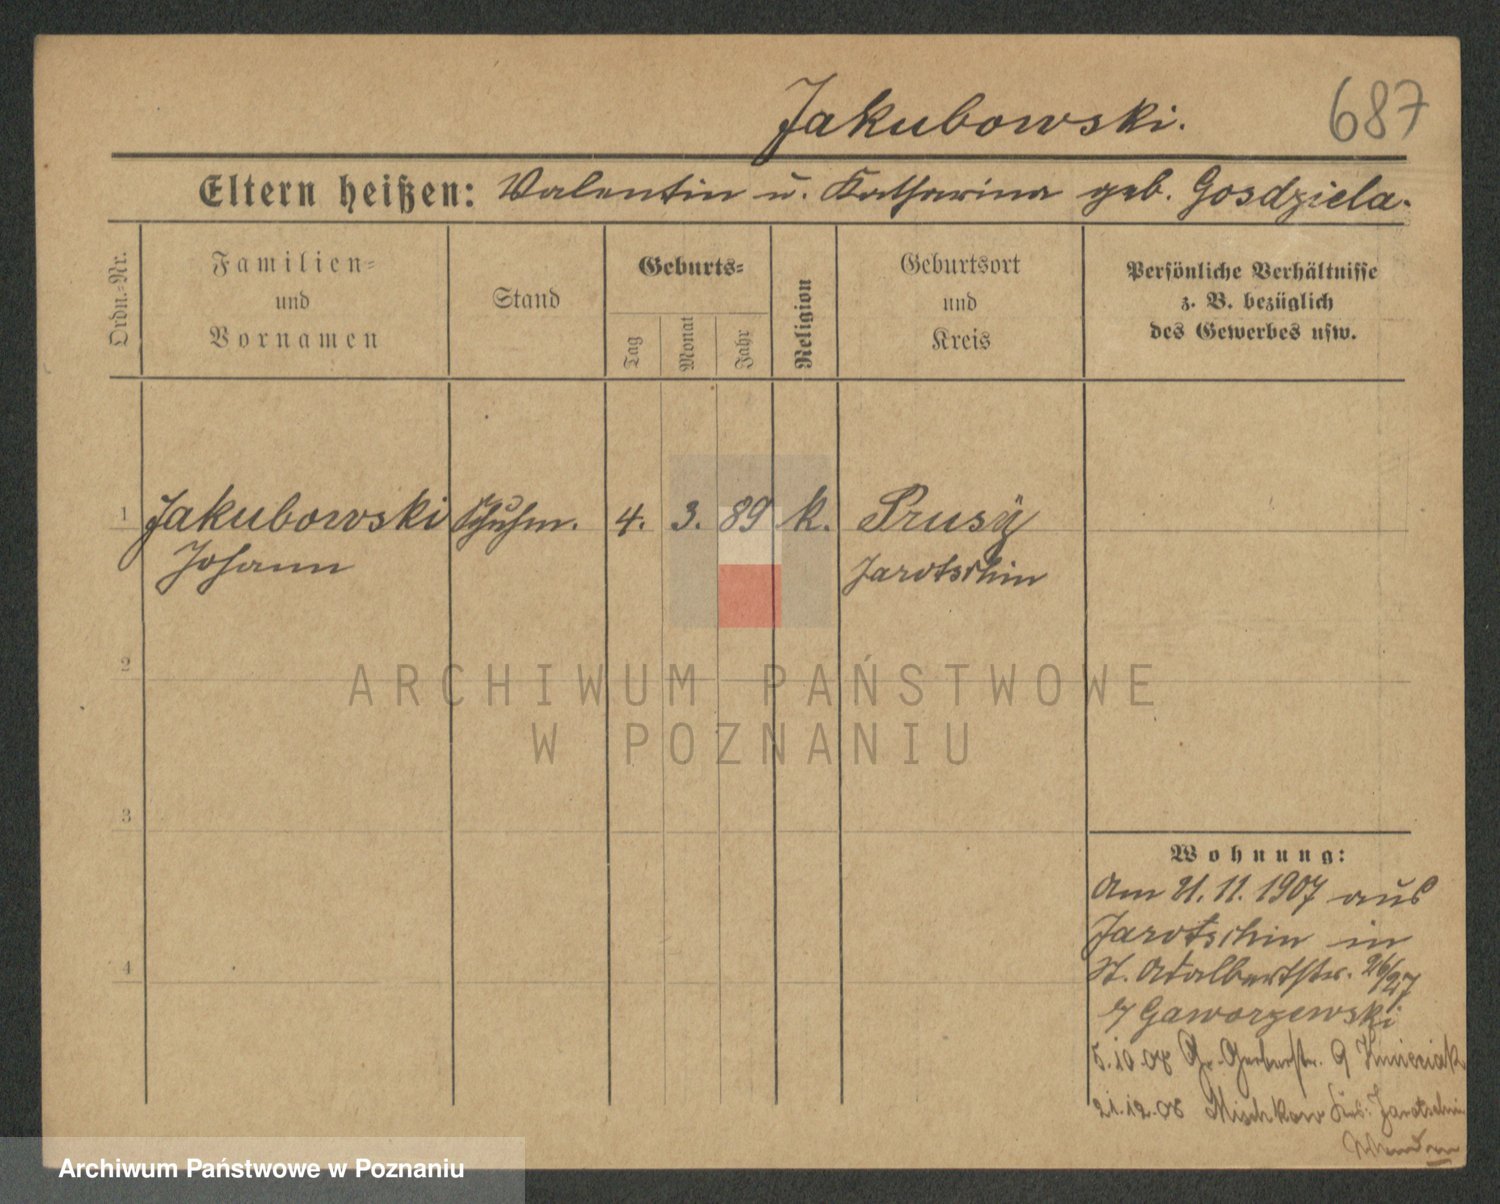 Jakubowski.
687
Eltern heißen: Valentin u. Katharina geb. Gosdziela.
Ordn.-Nr.
Familien-
und
Vornamen
Stand
Geburts-
Tag
Monat
Jahr
Religion
Geburtsort
und
Kreis
Persönliche Verhältnisse
z. B. bezüglich
des Gewerbes usw.
1 Jakubowski Schuhm. 4. 3. 89 k. Prusÿ
Johann Jarotschin
2
3
4
ARCHIWUM PAŃSTWOWE
W POZNANIU
Wohnung:
Am 21.11.1907 aus
Jarotschin in
St. Adalbertstr. 26/27
Gaworzewski
5.10.08 Gr. Gerberstr. 9 Kmieciak
21.12.08 Mischkow Krs. Jarotschin
Archiwum Państwowe w Poznaniu